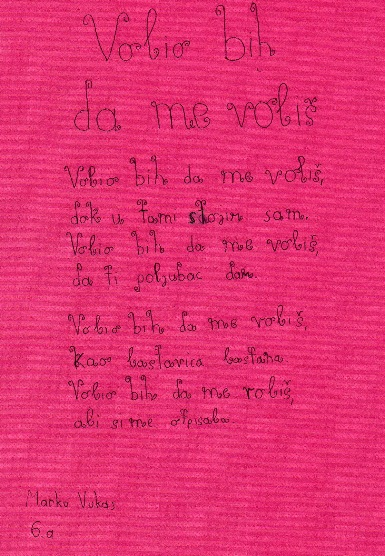 Volio bih
da me voliš
Volio bih da me voliš,
dok u tami stojim sam.
Volio bih da me voliš,
da ti poljubac dam.
Volio bih da me voliš,
Kao lastavica lastana
Volio bih da me voliš,
ali si me otpisala
Marko Vukas
6.a